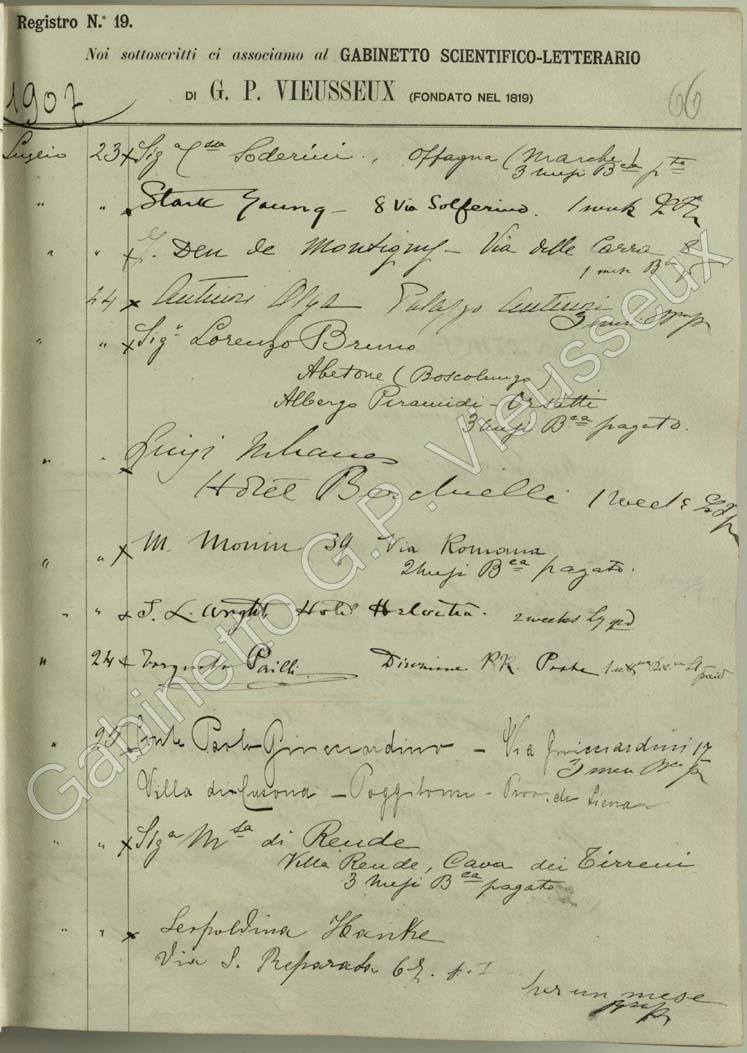 Registro N.º 19.
Noi sottoscritti ci associamo al GABINETTO SCIENTIFICO-LETTERARIO
DI G. P. VIEUSSEUX (FONDATO NEL 1819)
1907
66
Luglio 23 x Sigª Cssa Soderini, Offagna (Marche)
3 mesi Bca pto
" " Stark Young - 8 Via Solferino. 1 week
" " x Den de Montigny - Via delle Carra 8
1 mese Ba
24 x Antinori Palazzo Antinori
" " x Sigr Lorenzo Bruno
Abetone (Boscolungo)
Albergo Piramidi - Orsatti
3 mesi Bca pagato.
" " x Luigi
Hotel Berchielli 1 week
" " x M. Monin 39 Via Romana
2 mesi Bca pagato.
" " x S. L. Wright Hotel Helvetia. 2 weeks
" 24 x Torquato Pailli Direzione RR. Poste paid
" 25 Conte Paolo Guicciardini - Via Guicciardini 17
3 mesi
Villa di Cusona - Poggibonsi - Prov. di Siena
" " x Sigª Msa di Rende
Villa Rende, Cava dei Tirreni
3 mesi Bca pagato
" " x Leopoldina Hanke
Via S. Reparata 67. p. I
per un mese
Gabinetto G.P. Vieusseux